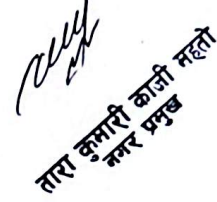 तारा कुमारी काजी महतो
नगर प्रमुख